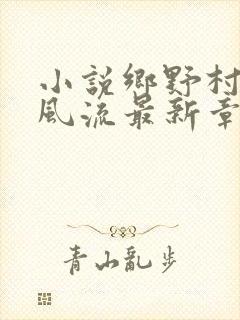 小説鄉野村
風流最新章
青山亂步